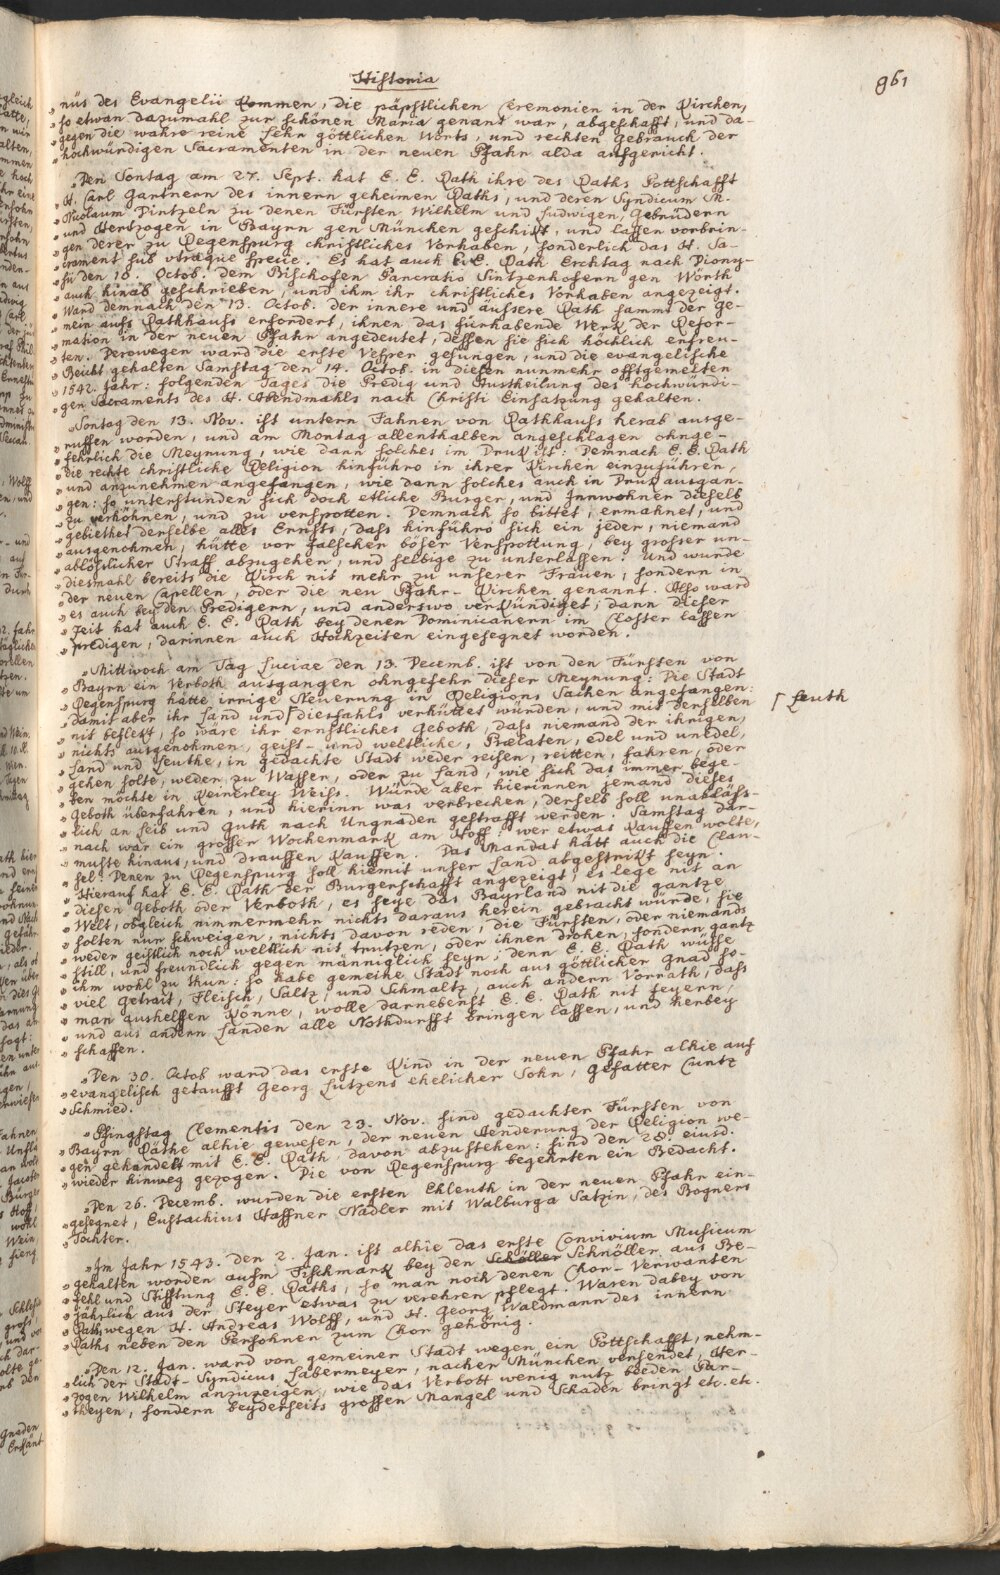 Historia
961
nüs des Evangelii Kommen, die päpstlichen Ceremonien in der Kirchen,
„ so etwan dazumahl zur schönen Maria genant war, abgeschafft, und da-
„ gegen die wahre reine Lehr göttlichen Worts, und rechten Gebrauch der
„ hochwürdigen Sacramenten in der neuen Pfahr alda aufgericht.
„Den Sontag am 27. Sept. hat E. E. Rath ihre des Raths Pottschafft
„ H. Carl Gartnern des innern geheimen Raths, und deren Syndicum M.
„ Nicolaum Dintzeln zu denen Fürsten Wilhelm und Ludwigen, Gebrüdern
„ und Hertzogen in Bayrn gen München geschikt, und lassen vorbrin-
„ gen derer zu Regenspurg christliches Vorhaben, sonderlich das H. Sa-
„ crament sub vtraque specie. Es hat auch E. E. Rath Erchtag nach Diony-
„ sii den 10. Octob. dem Bischofen Pancratio Sintzenhofern gen Wörth
„ auch hinab geschrieben, und ihm ihr christliches Vorhaben angezeigt.
„ Ward demnach den 13. Octob. der innere und äussere Rath sammt der ge-
„ mein aufs Rathhauss erfordert, ihnen das fürhabende Werk der Refor-
„ mation in der neuen Pfahr angedeutet, dessen sie sich höchlich erfreu-
„ ten. Derowegen ward die erste Vesper gesungen, und die evangelische
„ Beicht gehalten Samstag den 14. Octob. in diesen nunmehr offtgemelten
„ 1542. Jahr: folgenden Tages die Predig und Austheilung des hochwürdi-
„ gen Sacraments des H. Abendmahls nach Christi Einsatzung gehalten.
„Sontag den 13. Nov. ist untern Fahnen von Rathhauss herab ausge-
„ ruffen worden, und am Montag allenthalben angeschlagen ohnge-
„ fehrlich die Meynung, wie dann solches im Druk ist: Demnach E. E. Rath
„ die rechte christliche Religion hinführo in ihrer Kirchen einzuführen,
„ und anzunehmen angefangen, wie dann solches auch in Druk ausgan-
„ gen: so unterstunden sich doch etliche Burger, und Innwohner dieselb
„ zu verhöhnen, und zu verspotten. Demnach so bittet, ermahnet, und
„ gebiethet derselbe alles Ernsts, dass hinführo sich ein jeder, niemand
„ ausgenohmen, hütte vor falschen böser Verspottung, bey grosser un-
„ ablösslicher Straff abzugehen, und selbige zu unterlassen. Und wurde
„ diesmahl bereits die Kirch nit mehr zu unserer Frauen, sondern in
„ der neuen Capellen, oder die neu Pfahr-Kirchen genannt. Also ward
„ es auch bey den Predigern, und anderswo verkündiget; dann dieser
„ Zeit hat auch E. E. Rath bey denen Dominicanern im Closter lassen
„ predigen, darinnen auch Hochzeiten eingesegnet worden.
„Mittwoch am Tag Luciae den 13. Decemb. ist von den Fürsten von
„ Bayrn ein Verboth ausgangen ohngefehr dieser Meynung: Die Stadt
„ Regenspurg hätte irrige Neuerung in Religions Sachen angefangen:
„ damit aber ihr Land und⌈diesfahls verhüttet würden, und mit derselben
⌈ Leuth
„ nit beflekt, so wäre ihr ernstliches Geboth, dass niemand der ihrigen,
„ nichts ausgenohmen, geist- und weltliche, Prælaten, edel und unedel,
„ Land und Leuthe, in gedachte Stadt weder reisen, reitten, fahren, oder
„ gehen solte, weder zu Wasser, oder zu Land, wie sich das immer bege-
„ ben möchte in Keinerley Weiss. Würde aber hierinnen jemand dieses
„ Geboth überfahren, und hierinn was verbrechen, derselb soll unabläss-
„ lich an Leib und Guth nach Ungnaden gestrafft werden. Samstag dar-
„ nach war ein grosser Wochenmark am Hoff: wer etwas kauffen wolte,
„ muste hinaus, und draussen kauffen. Das Mandat hätt auch die Clau-
„ sel: Denen zu Regenspurg soll hiemit unser Land abgestrikt seyn.
„ Hierauf hat E. E. Rath der Burgerschafft angezeigt, es lege nit an
„ diesen Geboth oder Verboth, es seye das Bayrland nit die gantze
„ Welt, obgleich nimmermehr nichts daraus herein gebracht würde, sie
„ solten nur schweigen, nichts davon reden, die Fürsten, oder niemands
„ weder geistlich noch weltlich nit trutzen, oder ihnen drohen, sondern gantz
„ still, und freundlich gegen männiglich seyn; denn E. E. Rath wüsse
„ ihm wohl zu thun: so habe gemeine Stadt noch aus göttlicher Gnad so-
„ viel Getrait, Fleisch, Saltz, und Schmaltz, auch andern Vorrath, dass
„ man aushelffen könne, wolle darnebenst E. E. Rath nit feyern,
„ und aus andern Landen alle Nothdurfft bringen lassen, und herbey
„ schaffen.
„Den 30. Octob ward das erste Kind in der neuen Pfahr alhie auf
„ evangelisch getaufft Georg Lutzens ehelicher Sohn, Gefatter Cuntz
„ Schmied.
„Pfingstag Clementis den 23. Nov. sind gedachter Fürsten von
„ Bayrn Räthe alhie gewesen, der neuen Aenderung der Religion we-
„ gen gehandelt mit E. E. Rath, davon abzustehen: sind den 28. eiusd.
„ wieder hinweg gezogen. Die von Regenspurg begehrten ein Bedacht.
„Den 26. Decemb. wurden die ersten Ehleuth in der neuen Pfahr ein-
„ gesegnet, Eustachius Haffner Nadler mit Walburga Satzin, des Bogners
„ Tochter.
„Im Jahr 1543. den 2. Jan. ist alhie das erste Convivium Musicum
„ gehalten worden aufm Fischmark bey den Schöller Schnöller aus Be-
„ fehl und Stifftung E. E. Raths, so man noch denen Chor-Verwanten
„ jährlich aus der Steyer etwas zu verehren pflegt. Waren dabey von
„ Raths wegen H. Andreas Wolff, und H. Georg Waldmann des innern
„ Raths neben den Persohnen zum Chor gehörig.
„Den 12. Jan. ward von gemeiner Stadt wegen ein Pottschafft, nehm-
„ lich der Stadt-Syndicus Labermeyer, nacher München versendet, Her-
„ zogen Wilhelm anzuzeigen, wie das Verbott wenig nutz beeden Par-
„ theyen, sondern beyderseits grossen Mangel und Schaden bringt etc. etc.